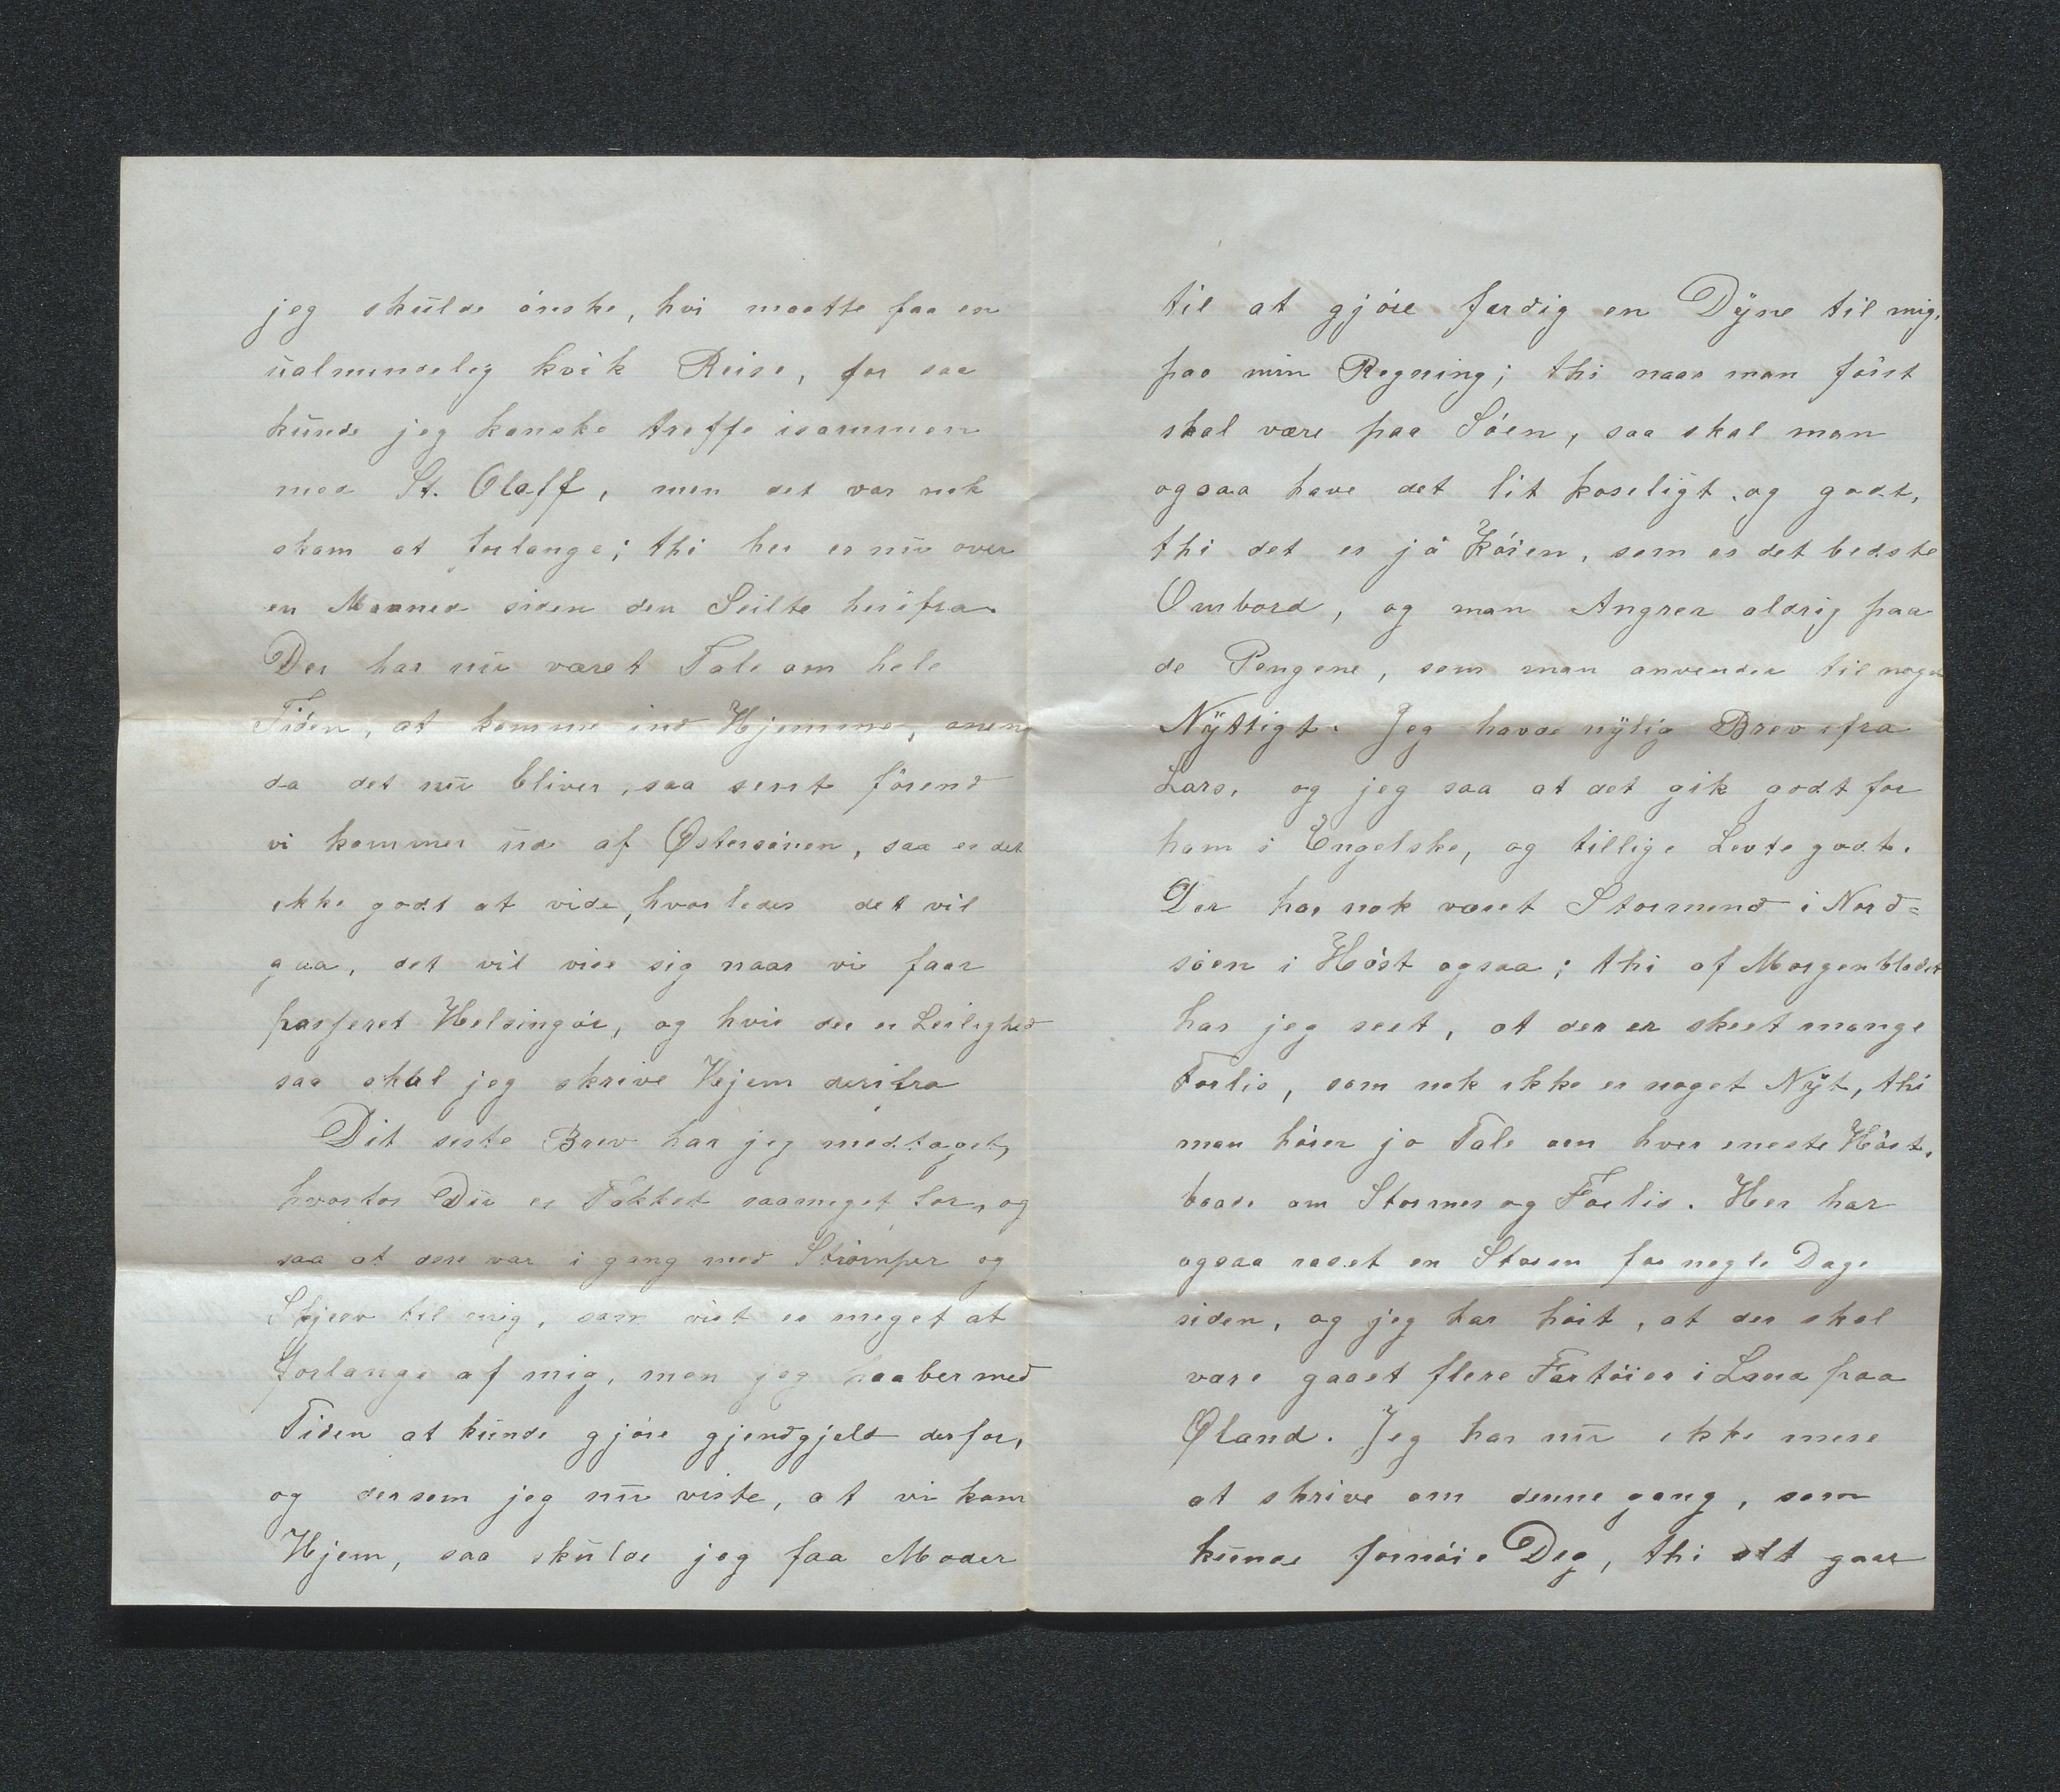 jeg skulde ónske, hvi maatte faa en
ualmindelig kvik Reise, for saa
kunde jeg kanske treffe isammen
med St. Olaff, men det var nok
skam at forlange; thi her er nu over
en Maaned siden den Seilte herifra.
Der har nu været Tale om hele
Tiden, at komme ind Hjemme, men
da det nu bliver, saa sent fórend
vi kommer ud af Østersóen, saa er det
ikke godt at vide, hvorledes det vil
gaa, det vil vise sig naar vi faar
passeret Helsingór, og hvis der er Leilighed
saa skal jeg skrive Hjem derifra
Dit siste Brev har jeg modtaget,
hvorfor Du er Takket saameget for, og
saa at dere var i gang med Strómper og
Skjerv til mig, som vist er meget at
forlange af mig, men jeg haaber med
Tiden at kunde gjóre gjendgjeld derfor,
og dersom jeg nu viste, at vi kom
Hjem, saa skulde jeg faa Moder
til at gjóre ferdig en Dÿne til mig,
paa min Regning; thi naar man fórst
skal være paa Sóen, saa skal man
ogsaa have det lit koseligt og godt,
thi det er jo Kóien, som er det bedste
Ombord, og man Angrer aldrig paa
de Pengene, som man anvender til noget
Nÿttigt. Jeg havde nÿlig Brev ifra
Lars, og jeg saa at det gik godt for
ham i Engelske, og tillige Levte godt.
Der har nok været Stormend i Nord=
sóen i Hóst ogsaa; thi af Morgenbladet
har jeg seet, at der er skeet mange
Forlis, som nok ikke er noget Nÿt, thi
man hórer jo Tale om hver eneste Hóst,
baade om Stormer og Forlis. Her har
ogsaa raset en Storm for nogle Dage
siden, og jeg har hórt, at der skal
være gaaet flere Fartóier i Land paa
Øland. Jeg har nu ikke mere
at skrive om denne gang, som
kunde fornóie Deg, thi alt gaar